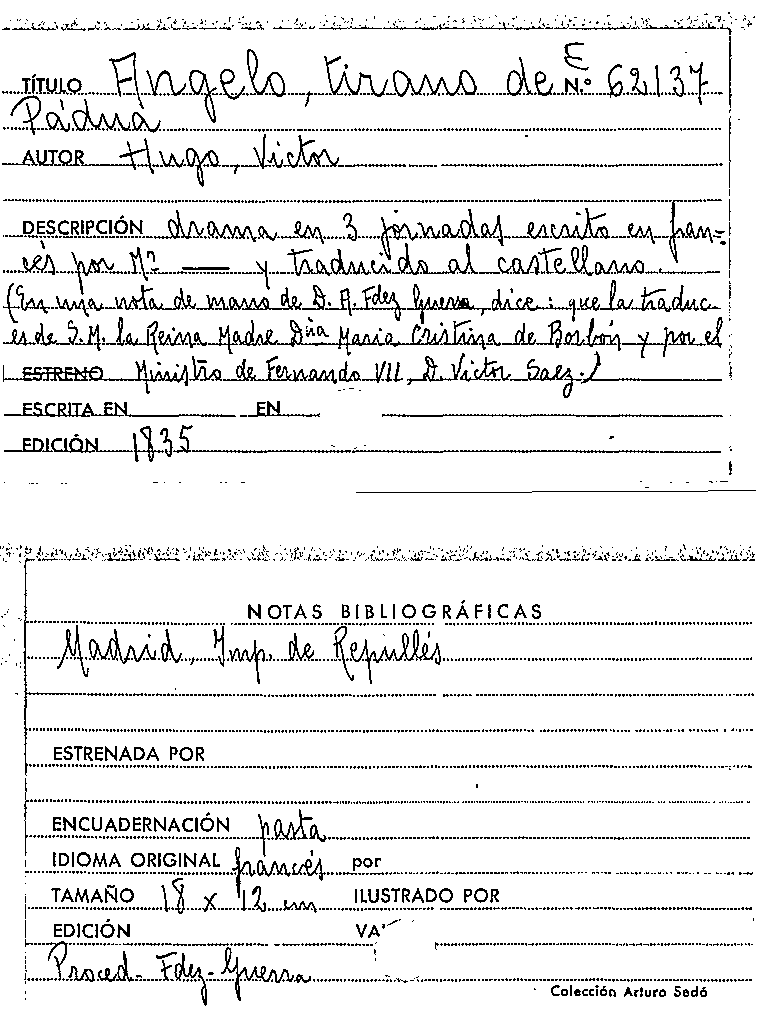 E
TÍTULO Angelo, tirano de N.º 62137
Pádua
AUTOR Hugo, Victor
DESCRIPCIÓN drama en 3 jornadas escrito en fran=
cés por Mº — y traducido al castellano.
(En una nota de mano de D. A. Fdez Guerra, dice: que la traduc
es de S.M. la Reina Madre Dña Maria Cristina de Borbón y por el
ESTRENO Ministro de Fernando VII, D. Victor Saez.)
ESCRITA EN EN
EDICIÓN 1835
NOTAS BIBLIOGRÁFICAS
Madrid, Imp. de Repullés
ESTRENADA POR
ENCUADERNACIÓN pasta
IDIOMA ORIGINAL francés por
TAMAÑO 18 x 12 cm ILUSTRADO POR
EDICIÓN VA
Proced- Fdez-Guerra
Colección Arturo Sedó